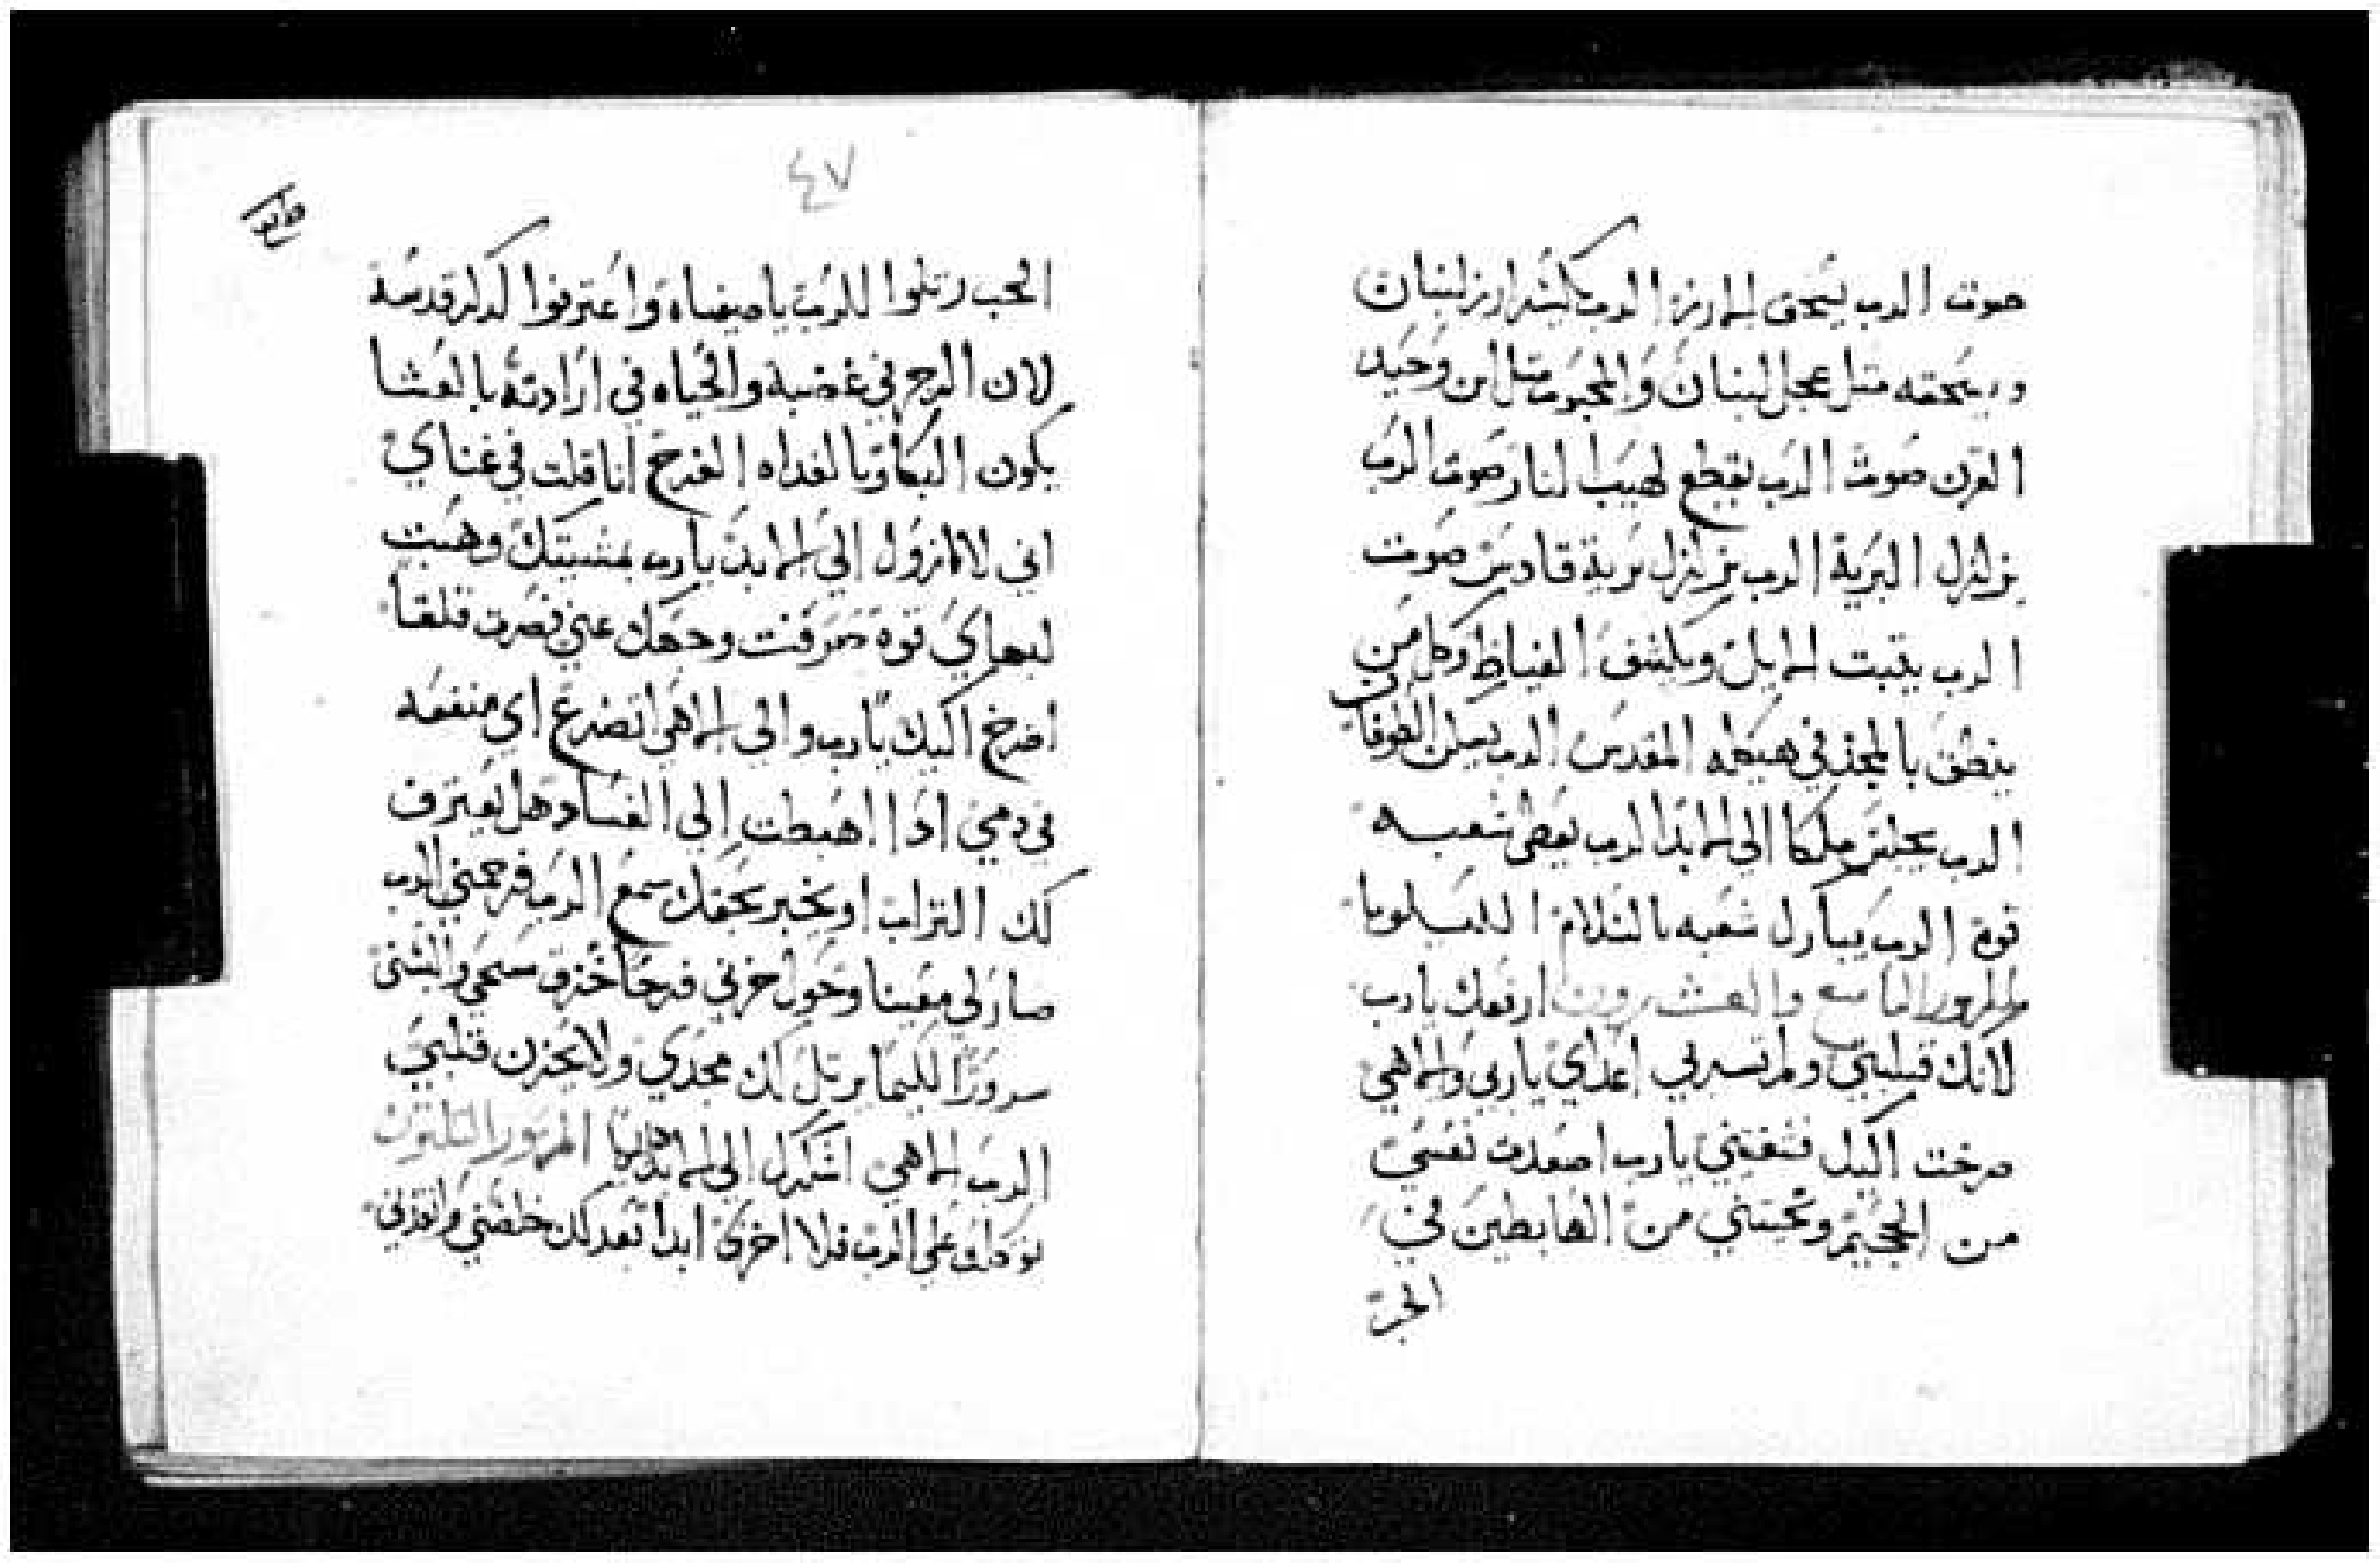 صوت الرب يسحق الارز الرب يكسر ارز لبنان
ويسحقه متل عجل لبنان والمحبوب متل ابن وحيد
القرن صوت الرب يقطع لهيب النار صوت الرب
يزلزل البرية الرب يزلزل برية قادس صوت
الرب يتبت الايل ويكشف الغياظ وكل من
ينطق بالمجد في هيكله المقدس الرب يسكن الطوفان
الرب يجلس ملكا الى الابد الرب يعطى شعبه
قوة الرب يبارك شعبه بالسلام الليلويا
المزمور التاسع والعشرون ارفعك يارب
لانك قبلتني ولم تسر بي اعداي ياربي والاهي
صرخت اليك فشفيتني يارب اصعدت نفسي
من الجحيم ونجيتني من الهابطين في
الجب
٤٧
الجب رتلوا للرب يا صفياه واعترفوا لذكر قدسه
لان الرجز في غضبه والحياه في ارادته بالعشا
يكون البكا وبالغداه الفرح انا قلت في غناي
اني لا ازول الى الابد يارب بمشيتك وهبت
لبهاي قوة صرفت وجهك عني فصرت قلقا
اصرخ اليك يارب والى الاهي اتضرع اي منفعه
في دمي اذا اهبطت الى الفساد هل يعترف
لك التراب او يخبر بحقك سمع الرب فرحمني الرب
صار لي معينا وحول حزني فرحا خزق مسحي والبسني
سرورا لكيما يرتل لك مجدي ولا يحزن قلبي
الرب الاهي اشكرك الى الابد المزمور التلتون
توكلت على الرب فلا اخزى ابدا بعدلك خلصني وانقذني